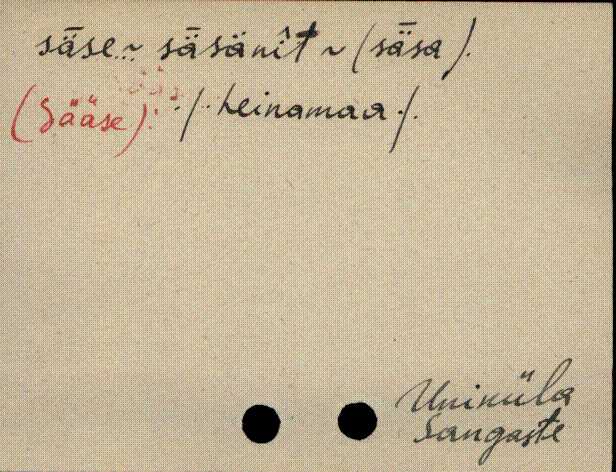 sǟse ~ sǟsänît ~ (sǟsa).
(Sääse) . /. heinamaa ./.
Uniküla
Sangaste